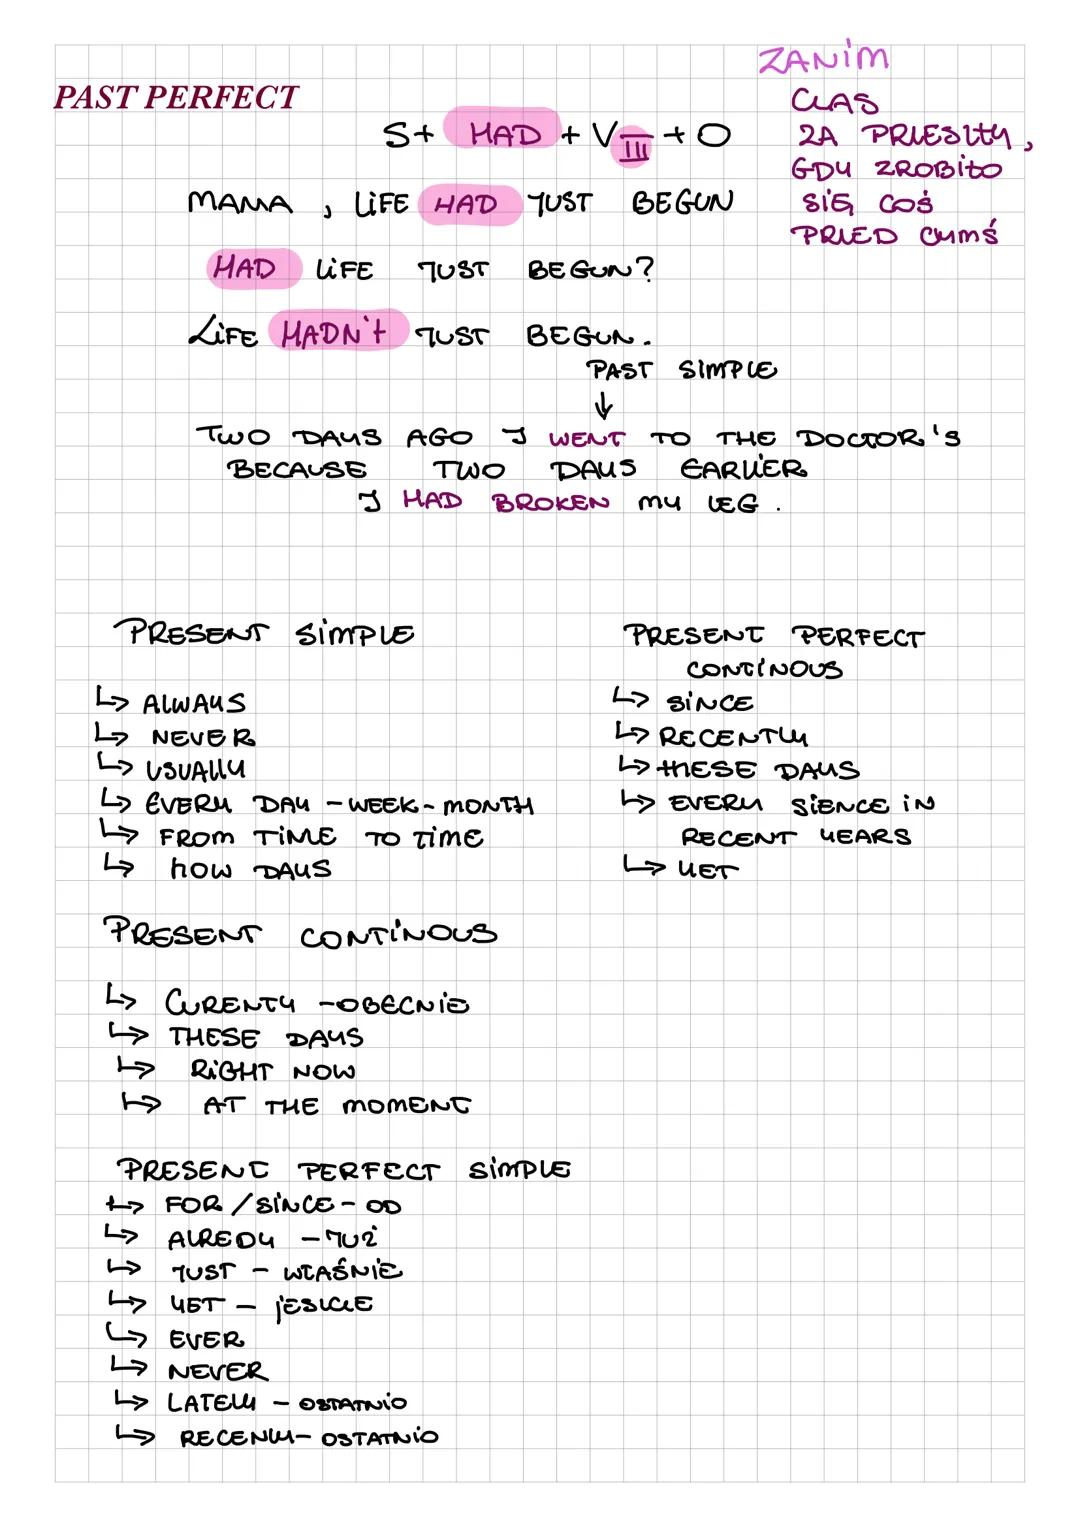 ZANIM
PAST PERFECT
CZAS
ZA PRZESZŁY,
GDY ZROBIŁO
SIĘ COŚ
PRZED CZYMŚ
S + HAD + V III + O
MAMA, LIFE HAD JUST BEGUN
HAD LIFE JUST BEGUN?
LIFE HADN'T JUST BEGUN.
PAST SIMPLE
↓
TWO DAYS AGO I WENT TO THE DOCTOR'S
BECAUSE TWO DAYS EARLIER
I HAD BROKEN MY LEG.
PRESENT SIMPLE
↳ ALWAYS
↳ NEVER
↳ USUALLY
↳ EVERY DAY - WEEK - MONTH
↳ FROM TIME TO TIME
↳ HOW DAYS
PRESENT PERFECT
CONTINOUS
↳ SINCE
↳ RECENTLY
↳ THESE DAYS
↳ EVERY SIENCE IN
RECENT YEARS
↳ YET
PRESENT CONTINOUS
↳ CURENTY - OBECNIE
↳ THESE DAYS
↳ RIGHT NOW
↳ AT THE MOMENT
PRESENT PERFECT SIMPLE
↳ FOR / SINCE - OD
↳ ALREDY - JUŻ
↳ JUST - WŁAŚNIE
↳ YET - JESZCZE
↳ EVER
↳ NEVER
↳ LATELY - OSTATNIO
↳ RECENLY - OSTATNIO